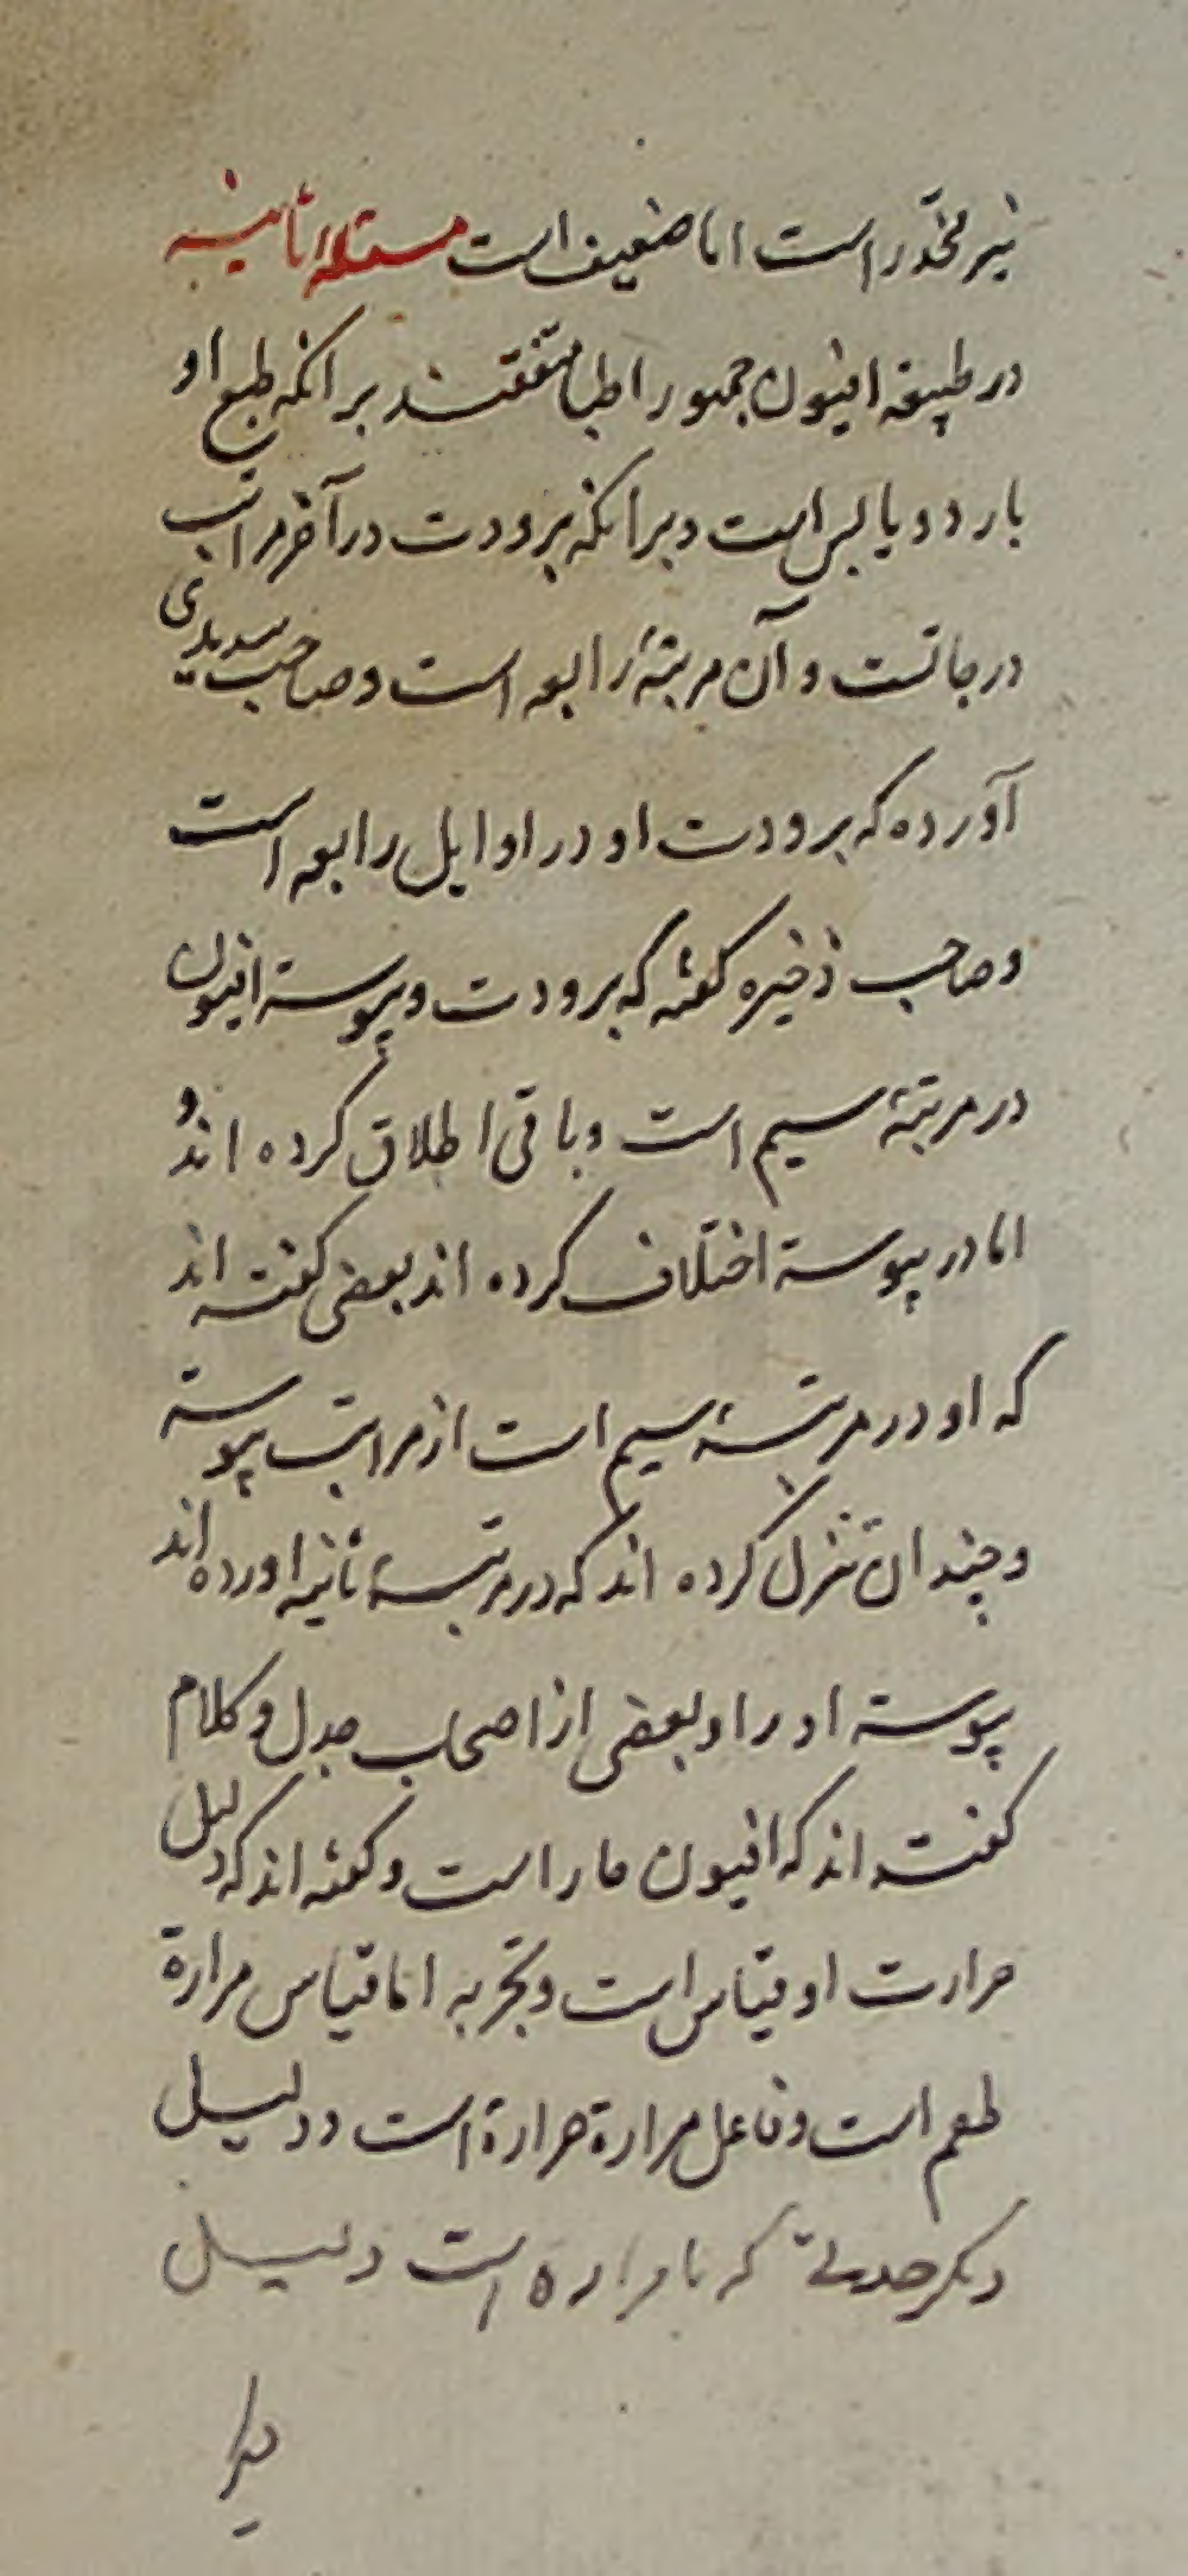 نیز مخدّر است اما ضعیف است مسئله ثانیه
در طبیعة افیون جمهور اطبا متفقند بر انکه طبع او
بارد و یابس است و بر انکه برودت در آخر مراتب
درجاتست و آن مرتبهٔ رابعه است و صاحب سدیدی
آورده که برودت او در اوایل رابعه است
و صاحب ذخیره کفته که برودت و یبوسة افیون
در مرتبهٔ سیم است و باقی اطلاق کرده اند و
اما در یبوسة اختلاف کرده اند بعضی کفته اند
که او در مرتبهٔ سیم است از مراتب یبوسة
و چندان تنزل کرده اند که در مرتبهٔ ثانیه اورده اند
یبوسة او را و بعضی از اصحاب جدل و کلام
کفته اند که افیون حار است و کفته اند که دلیل
حرارت او قیاس است و تجربه اما قیاس مرارة
طعم است و فاعل مرارة حرارة است و دلیل
دیکر حدتی که با مراره است دلیل
دیکر